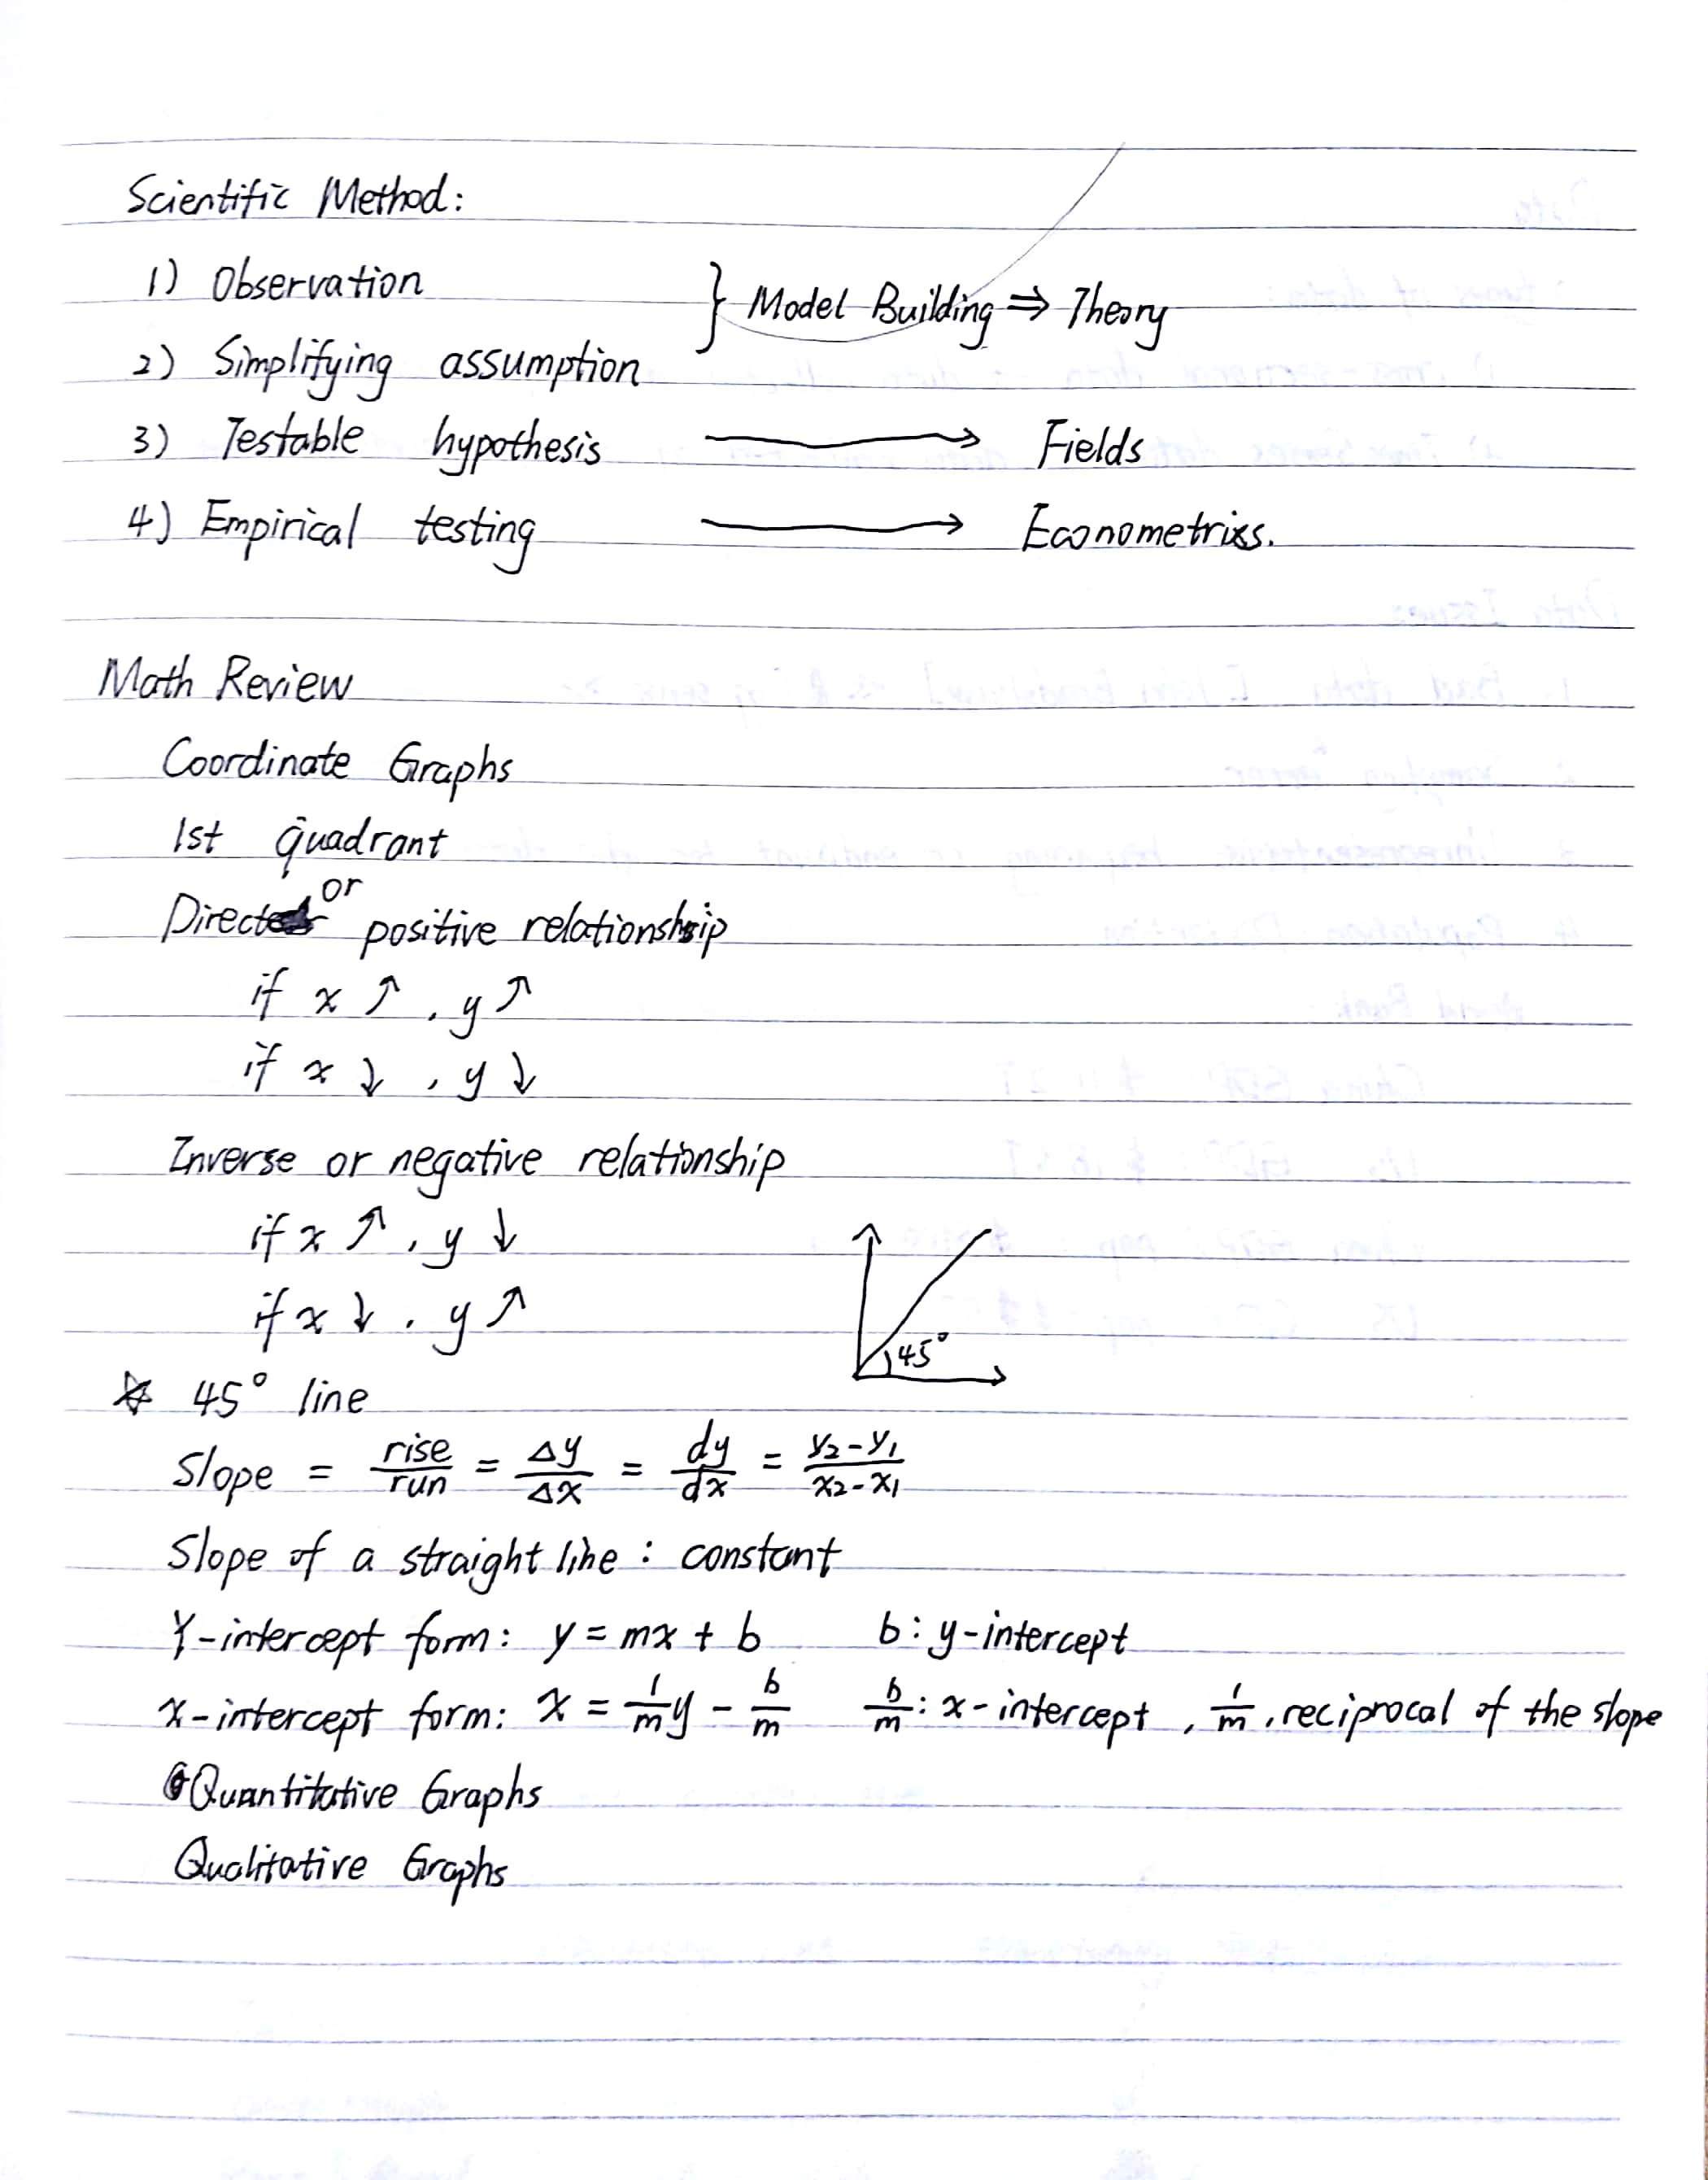 Scientific Method:
1) Observation
2) Simplifying assumption
} Model Building ⇒ Theory
3) Testable hypothesis → Fields
4) Empirical testing → Econometrics.
Math Review
Coordinate Graphs
1st quadrant
Direct or positive relationship
if x ↑, y ↑
if x ↓, y ↓
Inverse or negative relationship
if x ↑, y ↓
if x ↓, y ↑
45°
☆ 45° line
Slope = rise/run = Δy/Δx = dy/dx = (y₂-y₁)/(x₂-x₁)
Slope of a straight line : constant
Y-intercept form: y = mx + b b: y-intercept
x-intercept form: x = 1/m y - b/m b/m: x-intercept, 1/m, reciprocal of the slope
Quantitative Graphs
Qualitative Graphs